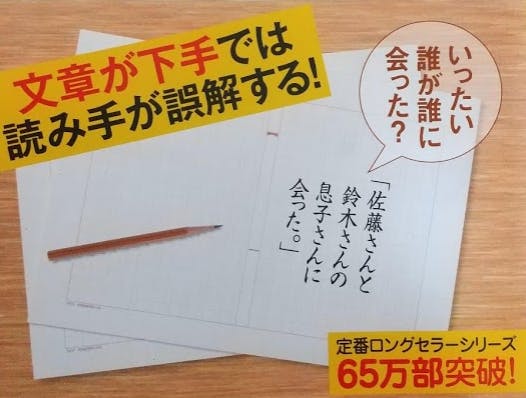 文章が下手では
読み手が誤解する!
いったい
誰が誰に
会った?
「佐藤さんと
鈴木さんの
息子さんに
会った。」
定番ロングセラーシリーズ
65万部突破!